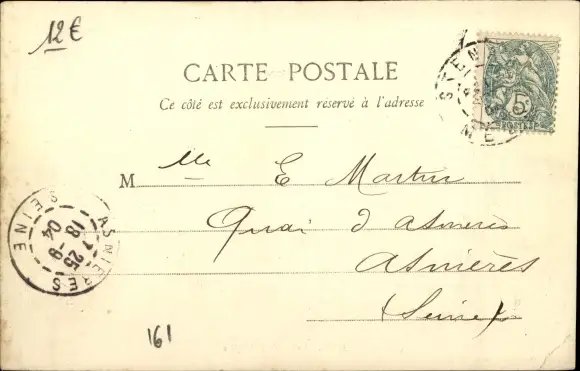 12€
CARTE POSTALE
Ce côté est exclusivement réservé à l'adresse
5c
POSTES
Mlle E Martin
Quai d'asnières
Asnières
(Seine)
ASNIERES
SEINE
7 25
18-9
04
161